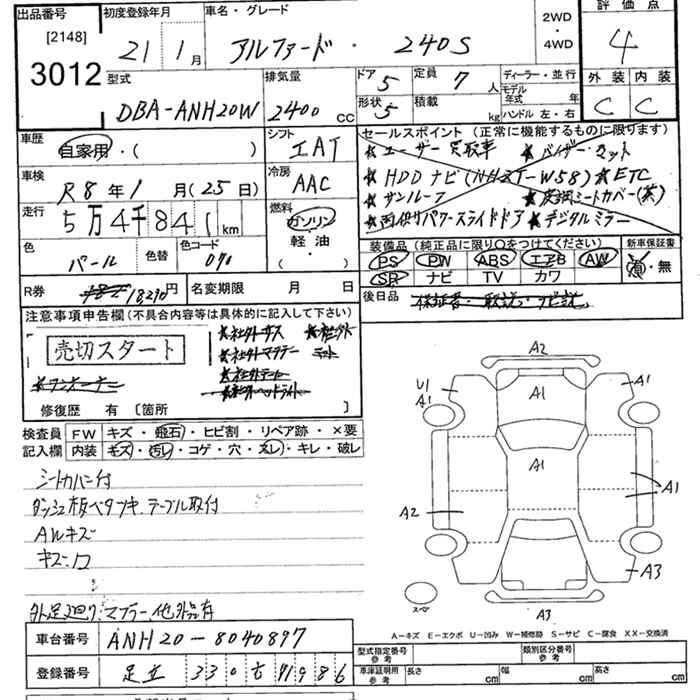 出品番号 初度登録年月 車名・グレード 2WD・4WD 評価点
[2148]
3012 21年1月 アルファード・240S 4
型式 排気量 ドア 5 定員 7人 ディーラー・並行 外装 内装
DBA-ANH20W 2400cc 形状 5 積載 kg モデル年式 年 ハンドル 左・右 C C
車歴 自家用・( ) シフト IAT セールスポイント(正常に機能するものに限ります)
★ユーザー買取車 ★バイザーマット
車検 R8年1月(25日) 冷房 AAC ★HDDナビ(NHZT-W58) ★ETC
★サンルーフ
走行 5万4千841km 燃料 ガソリン・軽油・( ) ★両側パワースライドドア ★デジタルミラー
色 パール 色替 色コード 070 装備品(純正品に限り○をつけてください) 新車保証書
PS PW ABS エアB AW 有・無
SR ナビ TV カワ
R券 18290円 名変期限 月 日 後日品 保証書・取説・ナビ説
注意事項申告欄(不具合内容等は具体的に記入して下さい)
売切スタート ★社外サス
★社外マフラー
★ワンオーナー
★社外ヘッドライト
修復歴 有 [箇所 ]
検査員 FW キズ・飛石・ヒビ割・リペア跡・×要
記入欄 内装 キズ・汚レ・コゲ・穴・スレ・キレ・破レ
シートカバー付
ダッシュ板ベタツキ、テーブル取付
AWキズ
キズ・凹
外足廻り、マフラー他外品有
A2
U1 A1 A1 A1
A1
A2 A1
A3
スペア A3
A-キズ E-エクボ U-凹み W-補修跡 S-サビ C-腐食 XX-交換済
車台番号 ANH20-8040897 型式指定番号 参考 類別区分番号 参考
登録番号 足立 330 せ 7986 車庫証明用 参考 長さ cm 幅 cm 高さ cm